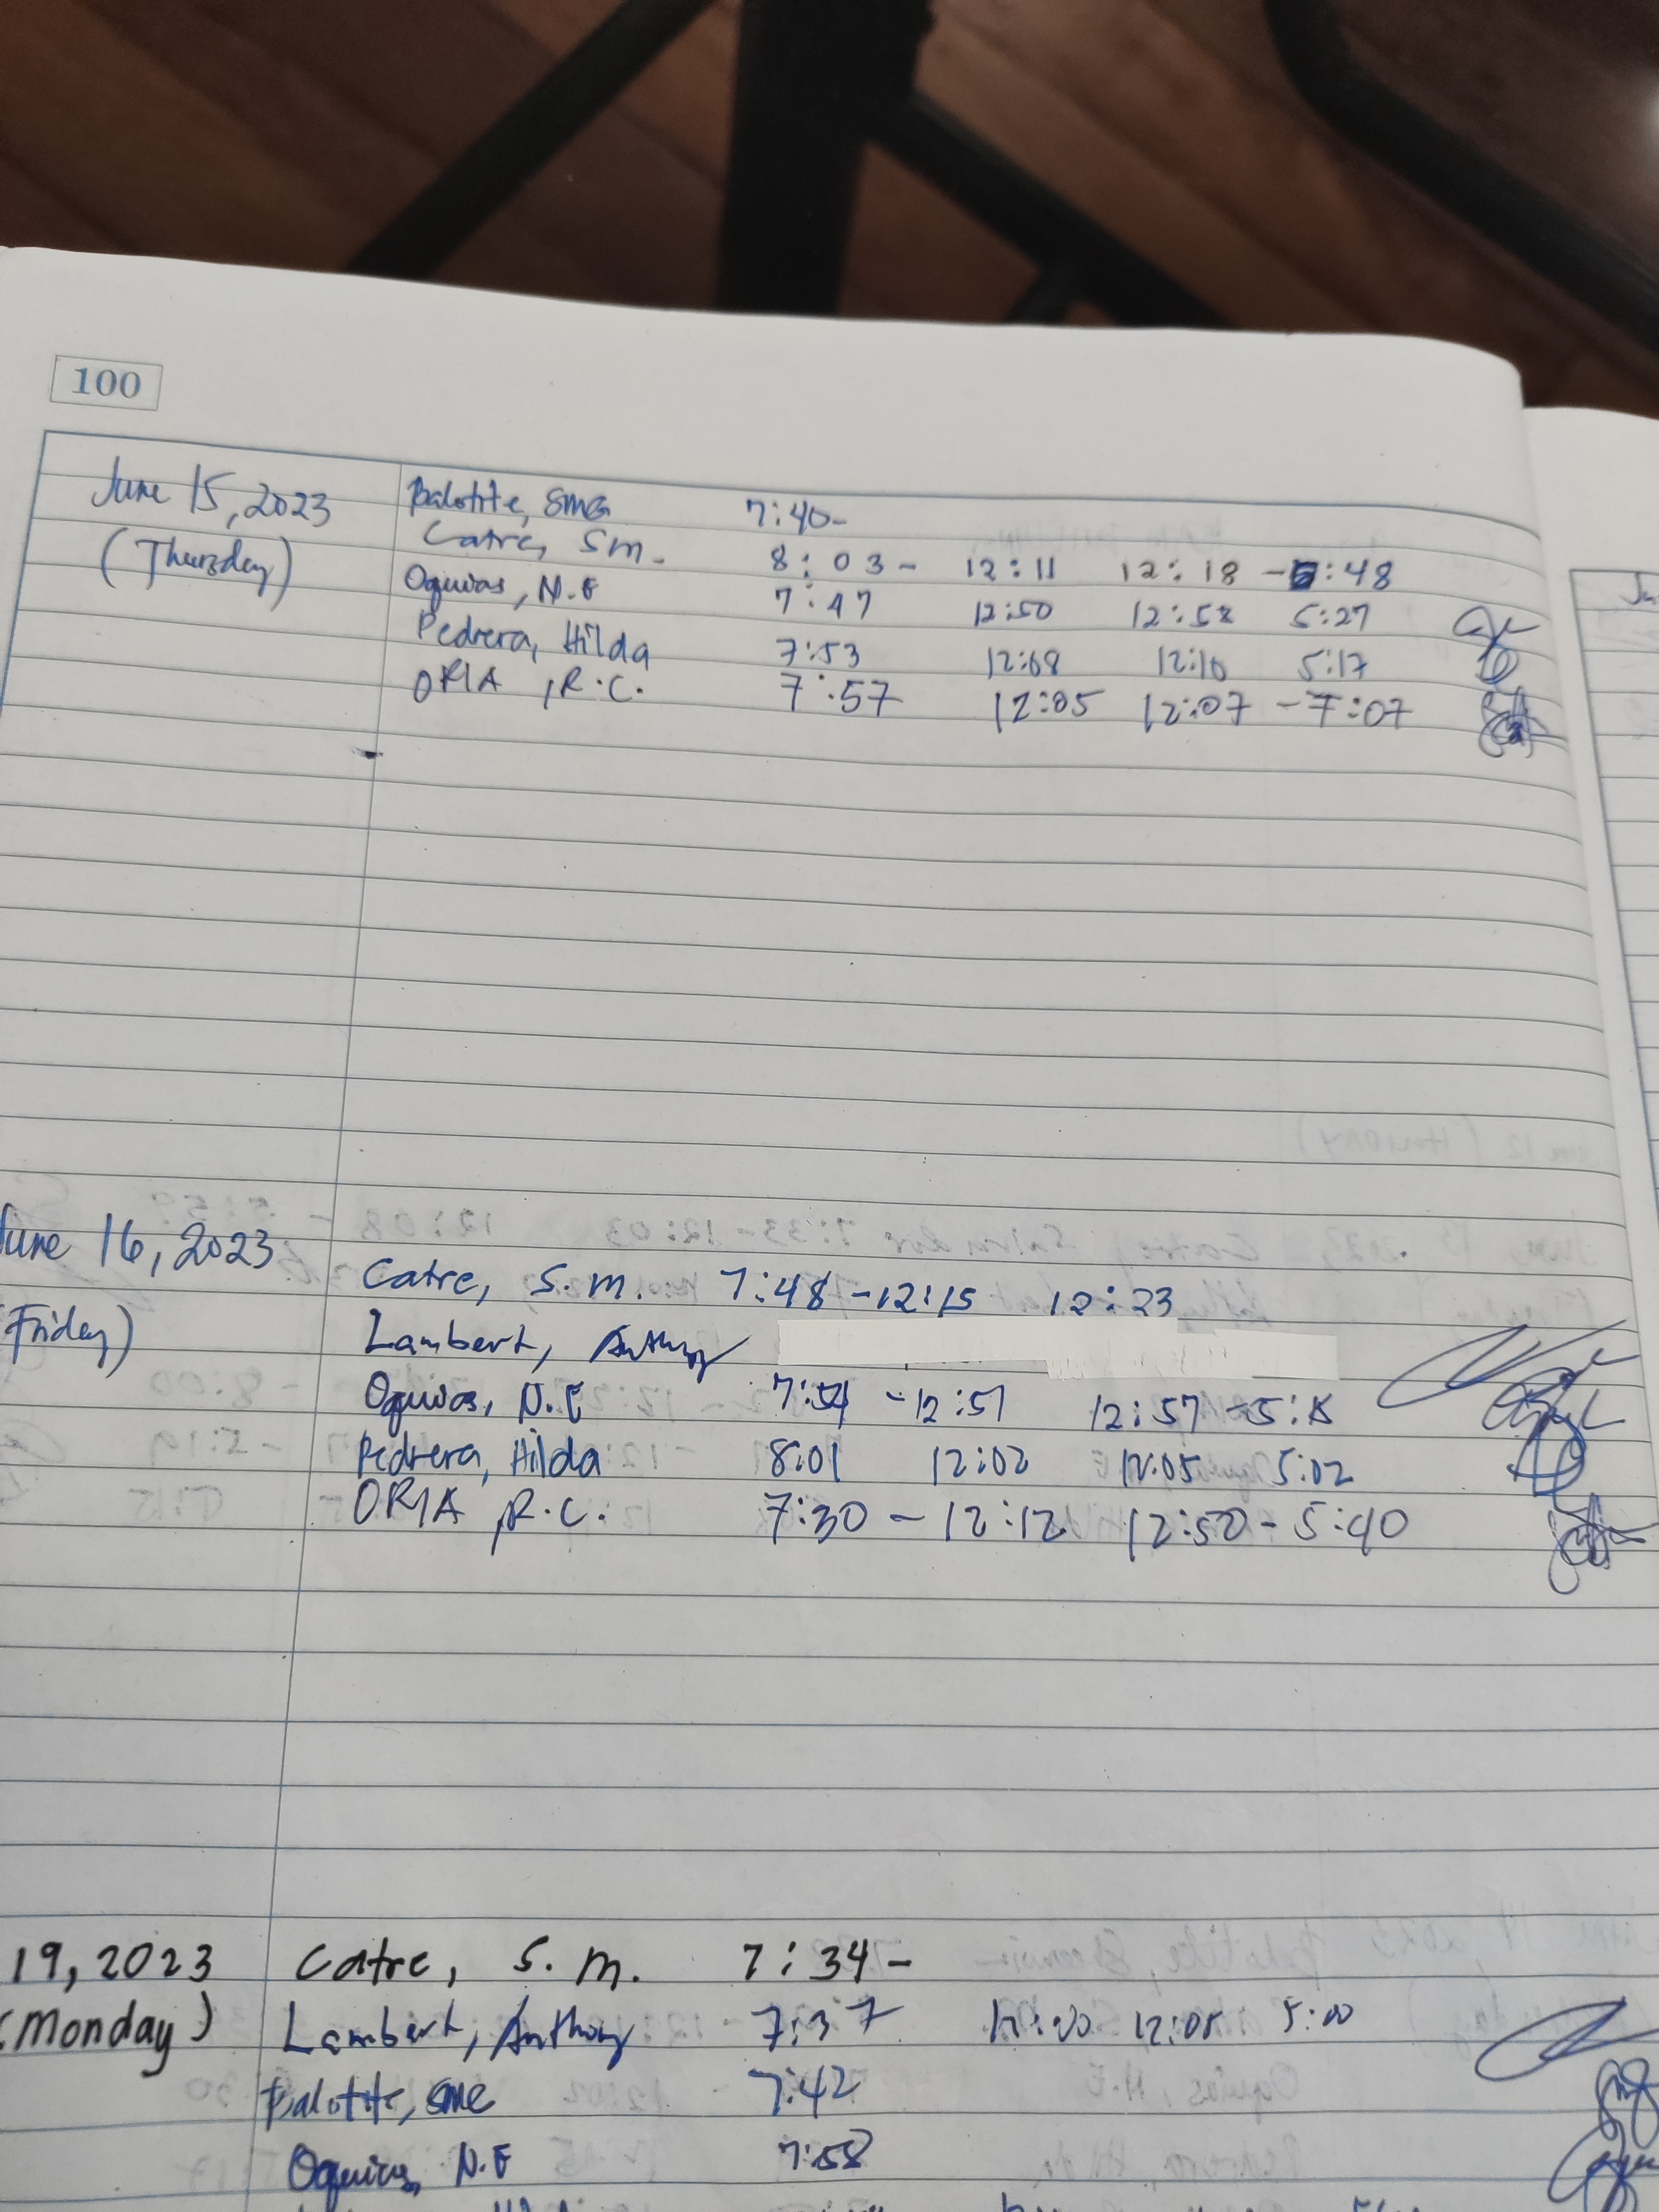 100
June 15, 2023
(Thursday)
Balotite, SMG 7:40-
Catre, Sm. 8:03- 12:11 12:18 -5:48
Oquias, N.E 7:47 12:50 12:58 5:27
Pedrera, Hilda 7:53 12:08 12:10 5:17
ORIA, R.C. 7:57 12:05 12:07 -7:07
June 16, 2023
(Friday)
Catre, S.M. 7:48 -12:15 12:23
Lambert, Anthony
Oquias, N.E 7:54 -12:51 12:57 -5:15
Pedrera, Hilda 8:01 12:02 12:05 5:02
ORIA, R.C. 7:30 - 12:12 12:50 - 5:40
19, 2023
(Monday)
Catre, S.M. 7:34-
Lambert, Anthony 7:37 12:00 12:05 5:00
Balotite, SME 7:42
Oquias, N.E 7:58